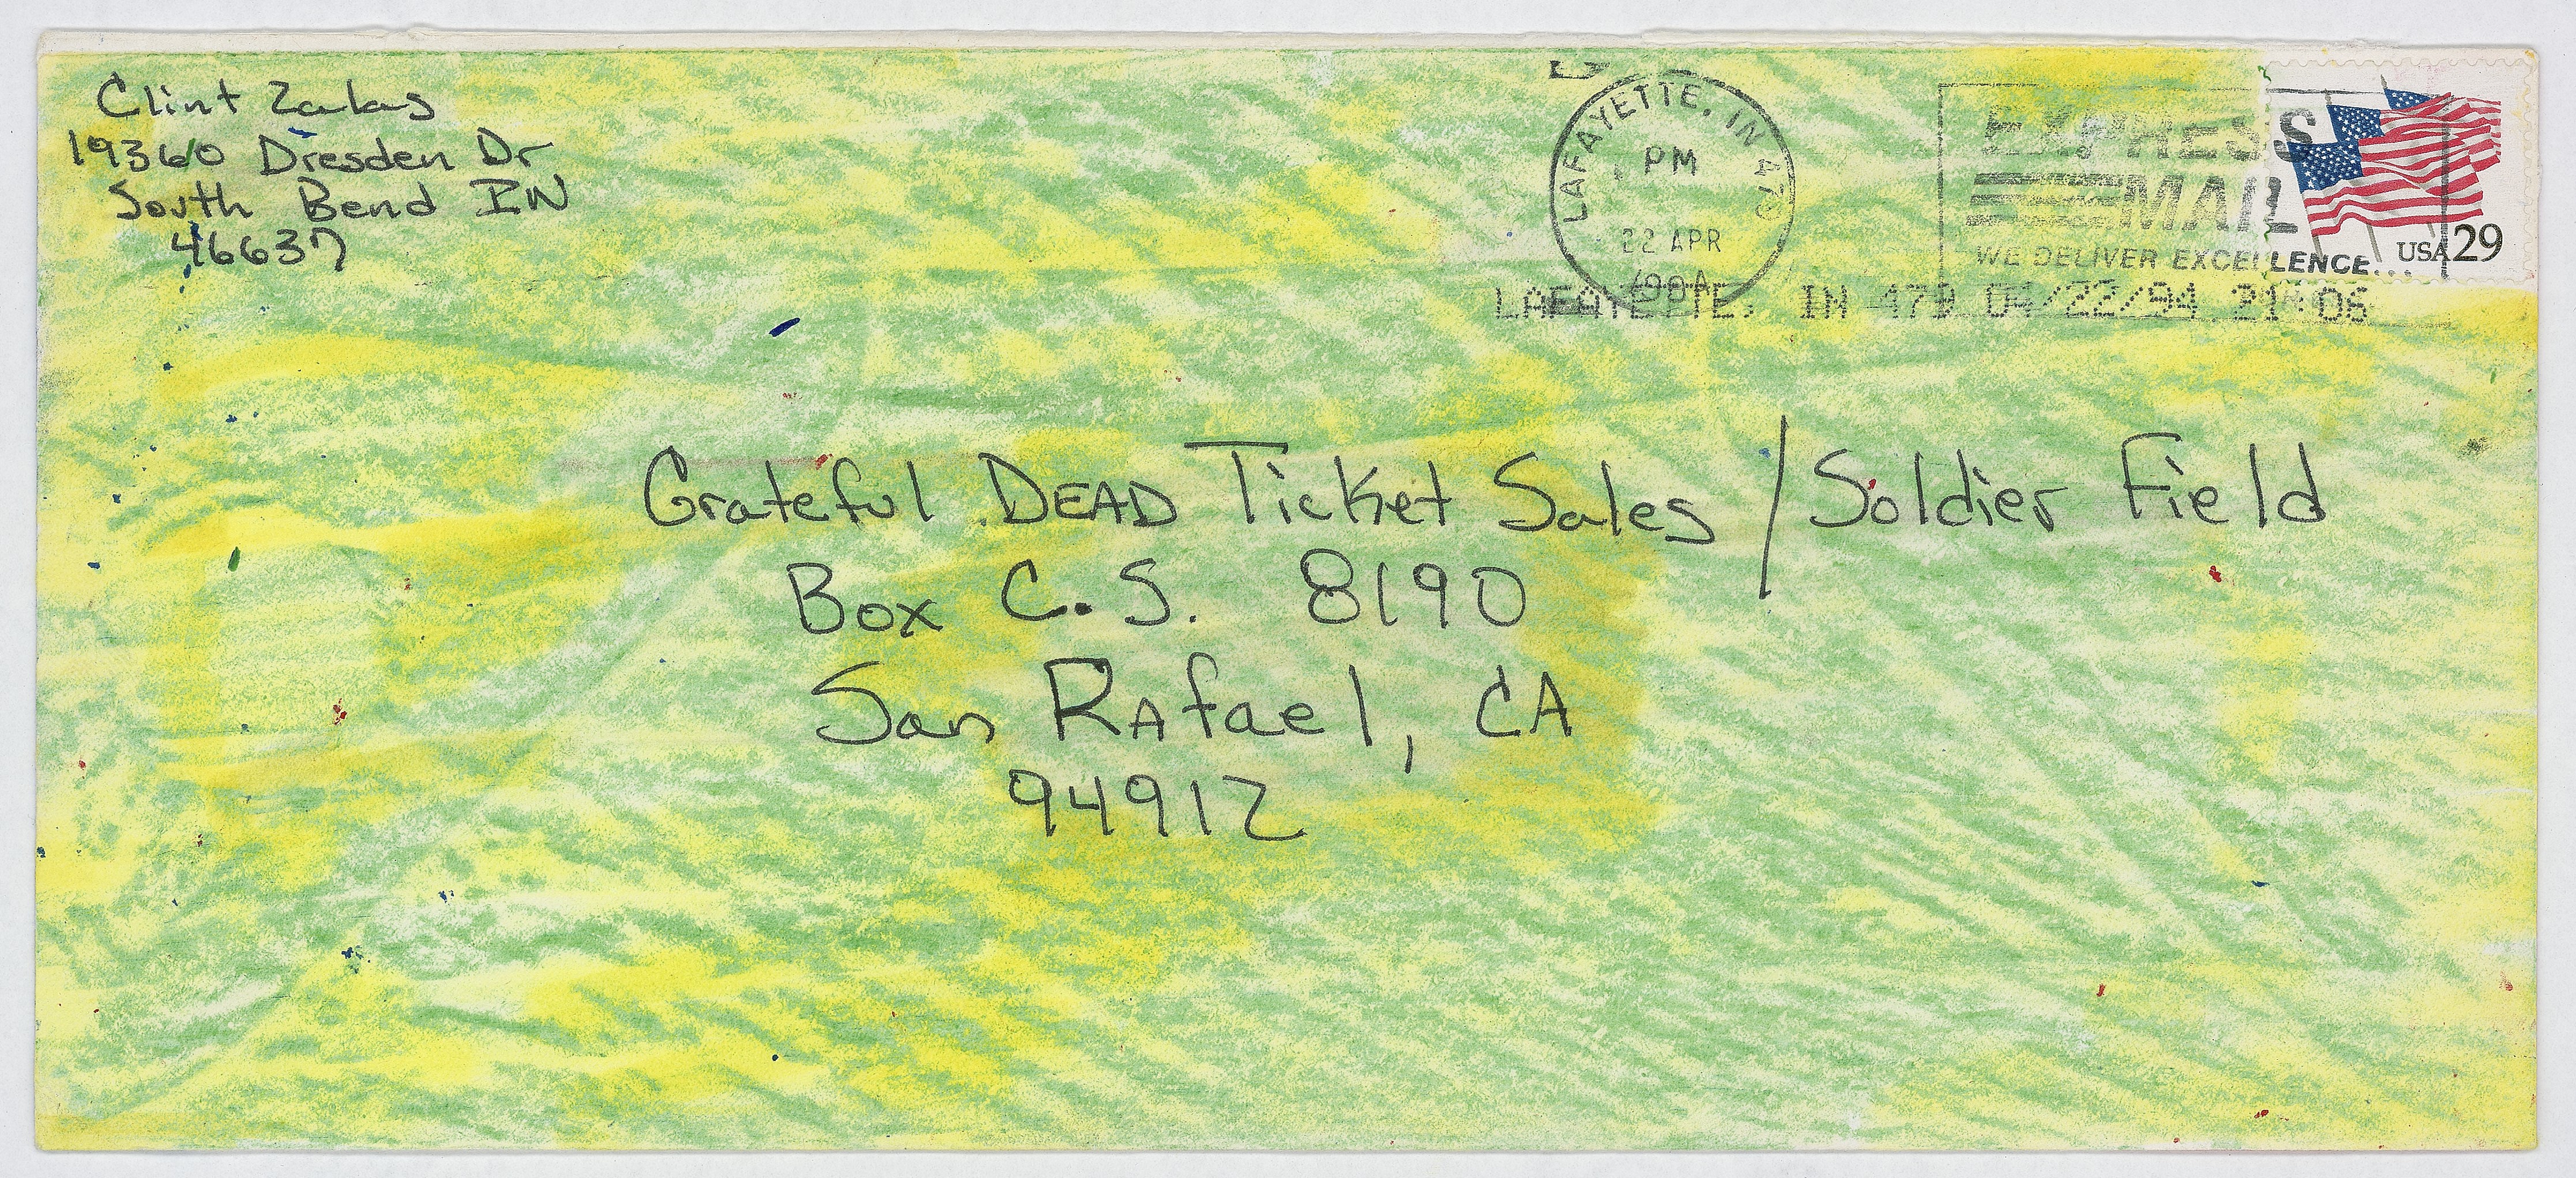 Clint Zakas
19360 Dresden Dr
South Bend IN
46637
LAFAYETTE, IN 479
PM
22 APR
1994
EXPRESS
MAIL
WE DELIVER EXCELLENCE...
USA 29
LAFAYETTE, IN 479 04/22/94 21:06
Grateful DEAD Ticket Sales / Soldier Field
Box C.S. 8190
San RAfael, CA
94912